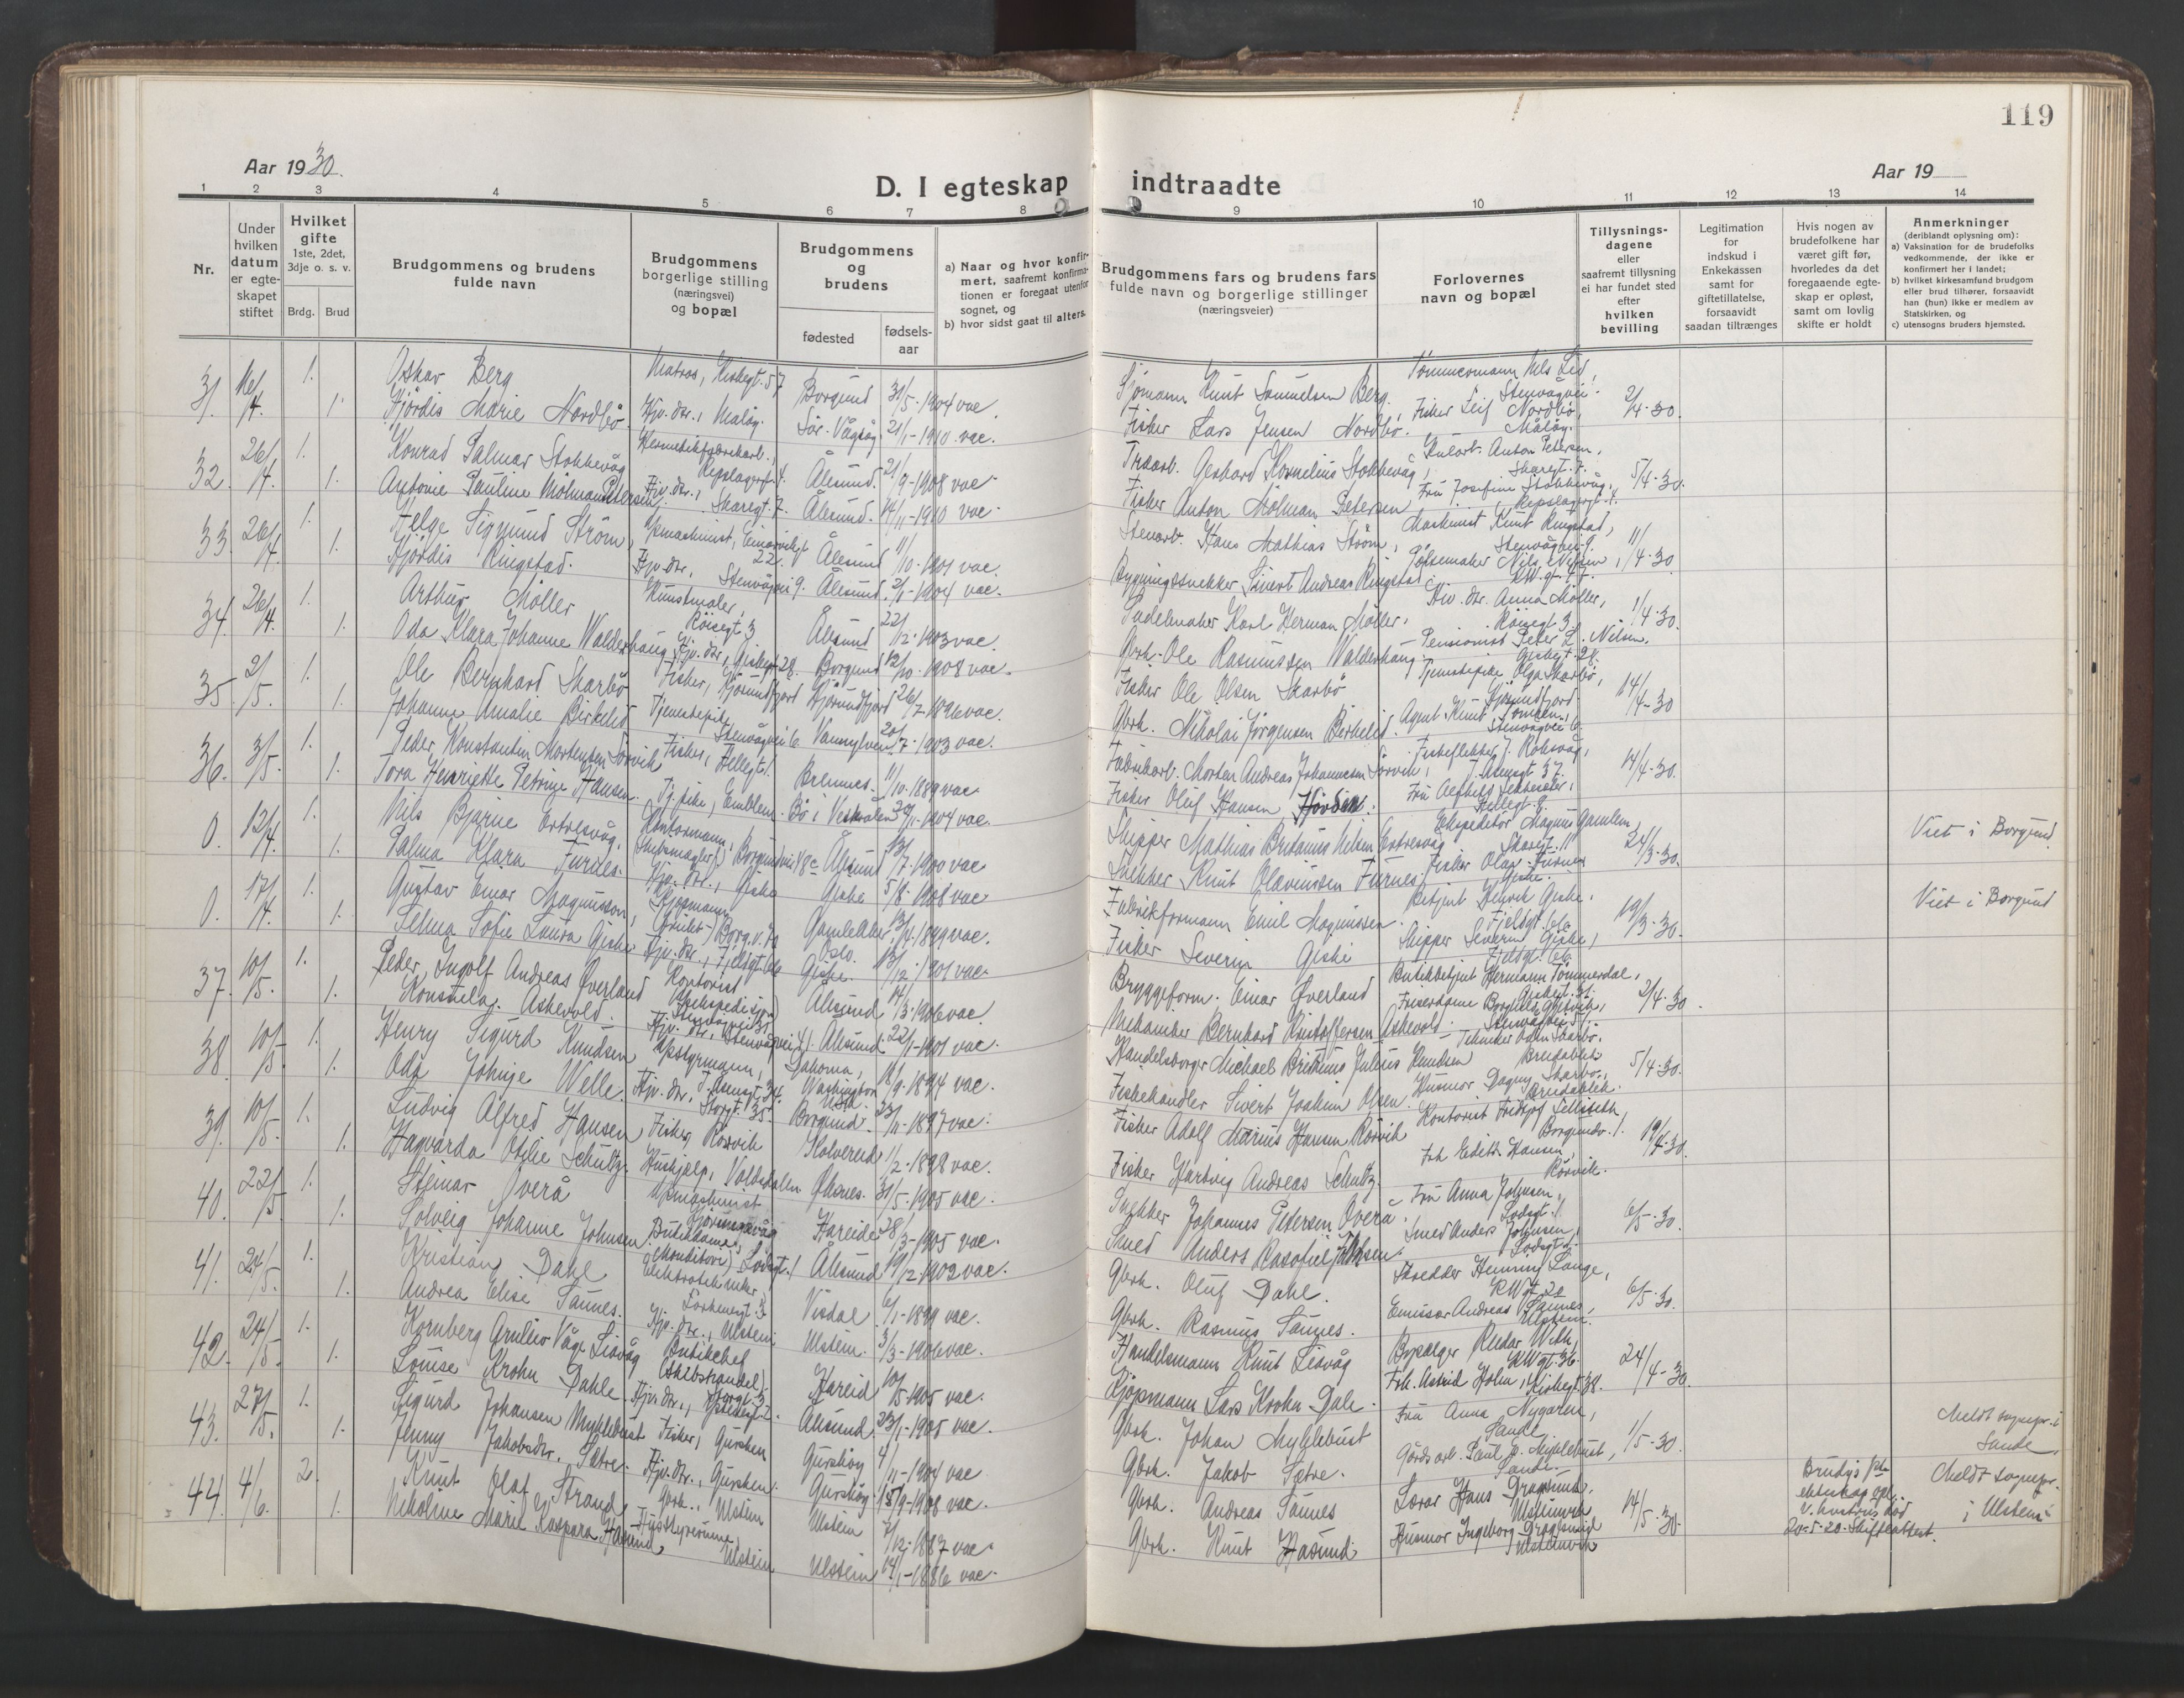 119
Aar 1930.
Aar 19
D. I egteskap indtraadte
1 2 3 4 5 6 7 8 9 10 11 12 13 14
Nr.
Under hvilken datum er egteskapet stiftet
Hvilket gifte
1ste, 2det, 3dje o. s. v.
Brdg. Brud
Brudgommens og brudens fulde navn
Brudgommens borgerlige stilling (næringsvei) og bopæl
Brudgommens og brudens
fødested
fødselsaar
a) Naar og hvor konfirmert, saafremt konfirmationen er foregaat utenfor sognet, og
b) hvor sidst gaat til alters.
Brudgommens fars og brudens fars fulde navn og borgerlige stillinger (næringsveier)
Forlovernes navn og bopæl
Tillysningsdagene eller saafremt tillysning ei har fundet sted efter hvilken bevilling
Legitimation for indskud i Enkekassen samt for giftetillatelse, forsaavidt saadan tiltrænges
Hvis nogen av brudefolkene har været gift før, hvorledes da det foregaaende egteskap er opløst, samt om lovlig skifte er holdt
Anmerkninger
(deriblandt oplysning om):
a) Vaksination for de brudefolks vedkommende, der ikke er konfirmert her i landet;
b) hvilket kirkesamfund brudgom eller brud tilhører, forsaavidt han (hun) ikke er medlem av Statskirken, og
c) utensogns bruders hjemsted.
31. 16/4. 1. Oskar Berg Matros, Kirkegt. 57 Borgund 31/5-1904 vac. Sjömann Knut Samuelsen Berg. Tömmermann Nils Lid, Stenvågvei 2/4-30.
1. Hjördis Marie Nordbö Hjv. dtr., Målöy. Sör-Vågsöy 21/1-1910 vac. Fisker Lars Jensen Nordbö. Fisker Leif Nordbö, Målöy.
32. 26/4. 1. Konrad Palmar Stokkevåg Hermetikfabrikarb., Repslagergt. 4. Ålesund. 21/9-1908 vac. Træarb. Gerhard Kornelius Stokkevåg, Kularb. Anton Petersen, Skaregt. 7. 5/4-30.
1. Antonie Pauline Molman Petersen Hjv. dtr., Skaregt. 7. Ålesund. 14/11-1910 vac. Fisker Anton Molman Petersen Fru Josefine Stokkevåg, Repslagergt. 4.
33. 26/4. 1. Helge Sigmund Ström, Maskinist, Einarvikgt 22. Ålesund 11/10-1901 vac. Stenarb. Hans Mathias Ström, Maskinist Knut Ringstad, Stenvågvei 9. 11/4-30
1. Hjördis Ringstad. Hjv. dtr., Stenvågvei 9. Ålesund. 2/1-1904 vac. Bygningssnekker Sivert Andreas Ringstad Pölsemaker Nils Nilsen, KW. gt. 47.
34. 26/4. 1. Arthur Möller Kunstmaler, Röisegt 3 Ålesund 22/12-1903 vac. Sadelmaker Karl Herman Möller, Hjv. dtr. Anna Möller, Röisegt 3. 11/4-30.
1. Oda Klara Johanne Walderhaug Hjv. dtr., Giskegt. 28. Borgund 12/10-1908 vac. Gbrk. Ole Rasmussen Walderhaug Pensionist Peter L. Nilsen, Giskegt. 28.
35. 2/5. 1. Ole Bernhard Skarbö Fisker, Hjörundfjord Hjörundfjord 26/7-1896 vac. Fisker Ole Olsen Skarbö Tjenestepike Olga Skarbö, Hjörundfjord. 14/4-30
1. Johanne Amalie Birkelid Tjenestepike, Stenvågvei 6 Vannylven 20/7-1903 vac. Gbrk. Nikolai Jörgensen Birkelid. Agent Knut Jomeen, Stenvågvei 6.
36. 3/5. 1. Peder Konstantin Mortensen Sörvik Fisker, Hellegt 1. Bremnes. 11/10-1889 vac Fabrikarb. Morten Andreas Johannesen Sörvik, Fiskeflekker J. Roksvåg, T. Asensgt 37. 14/4-30.
1. Tora Henriette Petrine Hansen. Tj. pike, Emblem Bö i Vesterålen 30/11-1904 vac. Fisker Oluf Hansen Hovden. Fru Hellegt. 9.
0. 12/4. 1. Nils Bjarne Ertresvåg, Kontormann, (Skibsmægler) Borgundvei 18c Ålesund 13/7-1900 vac Skipper Mathias Britanus Nilsen Ertresvåg Ekspeditör Magnus Gamlem, Skaregt. 11 24/3-30. Viet i Borgund.
1. Palma Klara Furnes. Hjv. dtr., Giske Giske 5/8-1908 vac. Snekker Knut Olavinssen Furnes. Fisker Olav Furnes Giske.
0. 17/4. 1. Gustav Einar Magnusson, Kjöpmann (Frukt-) Borg. v. 70 Gamlekker Oslo. 13/4-1899 vac. Fabrikformann Emil Magnussen Betjent Henrik Giske, Fjeldgt. 66. 19/3-30. Viet i Borgund
1. Selma Sofie Laura Giske Hjv. dtr., Fjeldgt. 66 Giske. 13/12-1901 vac. Fisker Severin Giske Skipper Severin Giske, Fjeldgt. 66.
37. 10/5. 1. Peder Ingolf Andreas Øverland Kontorist (Skibsekspedisjon) Stenvågvei 35 Ålesund 14/3-1906 vac. Bryggeform. Einar Øverland Butikkbetjent Hermann Tömmerdal, Giskegt. 31. 2/4-30.
1. Konstela Askevold. Hjv. dtr., Stenvågvei 41. Ålesund. 22/1-1901 vac. Mekaniker Bernhard Kristoffersen Askevold. Friserdame Borghild Giskvik, Stenvågvei 57.
38. 10/5. 1. Henry Sigurd Knudsen Styrmann, T. Asensgt. 34. Dakoma, Washington USA 18/9-1894 vac. Handelsborger Michael Britanus Julius Knudsen Tekniker Odin Skarbö, Breidablik 5/4-30.
1. Oda Johnje Welle. Hjv. dtr., Storgt. 35. Borgund. 23/11-1897 vac. Fiskehandler Sivert Joakim Olsen. Husmor Dagny Skarbö, Breidablik.
39. 10/5. 1. Ludvig Alfred Hansen, Fisker, Rörvik Kolvereid 1/2-1898 vac. Fisker Adolf Marius Hansen Rörvik Kontorist Fridtjof Sellseth Borgundv. 1. 19/4-30.
1. Hagvarda Otilie Schultz. Huskjelp, Valdedalen Øksnes. 31/5-1905 vac. Fisker Hartvig Andreas Schultz. Frk Edith Hansen, Rörvik.
40. 22/5. 1. Steinar Overå Maskinist Hjörungavåg Hareide 28/3-1905 vac. Snekker Johannes Petersen Overå Fru Anna Johnsen, Lodsgt. 1. 6/5-30.
1. Solveig Johanne Johnsen. Butikkdame, (Konditori) Lodsgt. 1 Ålesund 19/12-1902 vac. Smed Anders Rasofiel Johnsen. Smed Anders Johnsen, Lodsgt 1.
41. 24/5. 1. Kristian Dahl Elektrotekniker, Parkenesgt. 3 Visdal 6/1-1899 vac. Gbrk. Oluf Dahl. Skredder Henning Lange, KWgt. 20 6/5-30.
1. Andrea Elise Saunes. Hjv. dtr., Ulstein. Ulstein. 3/3-1906 vac. Gbrk. Rasmus Saunes. Emissær Andreas Saunes, Ulstein.
42. 24/5. 1. Kornberg Arnliev Våge Liavåg Butikchef (Skibshandel) Storgt. 3. Hareid 10/5-1905 vac. Handelsmann Knut Liavåg Bypælger Reidar With, KWgt. 36. 24/4-30.
1. Louise Krohn Dahle. Hjv. dtr., Ålesund. 23/1-1905 vac. Kjöpmann Lars Krohn Dale. Frk. Astrid Holm, Kirkegt. 38.
43. 27/5. 1. Sigurd Johansen Myklebust Fisker, Gursken Gurskøy 4/11-1904 vac Gbrk. Johan Myklebust Fru Anna Nygaren, Sande 1/5-30. Meldt sognepr. i Sande.
1. Jenny Jakobsdtr. Sætre. Hjv. dtr., Gursken. Gurskøy 15/9-1908 vac. Gbrk. Jakob Sætre. Gårdsarb. Paul P. Myklebust, Sande.
44. 4/6. 2. Knut Olaf Strand Gbrk., Ulstein Ulstein 7/12-1887 vac. Gbrk. Andreas Saunes Lærer Hans Dragsund, Ulsteinvik 14/5-30. Brudgs 1ste ekteskap opl. v. hustrus död 20-5-20. Skifteattest. Meldt sognepr. i Ulstein
1. Nikoline Marie Kaspara Hasund, Husstyrerinne, Ulstein Ulstein 14/1-1886 vac. Gbrk. Knut Hasund. Husmor Ingeborg Dragsund Ulsteinvik